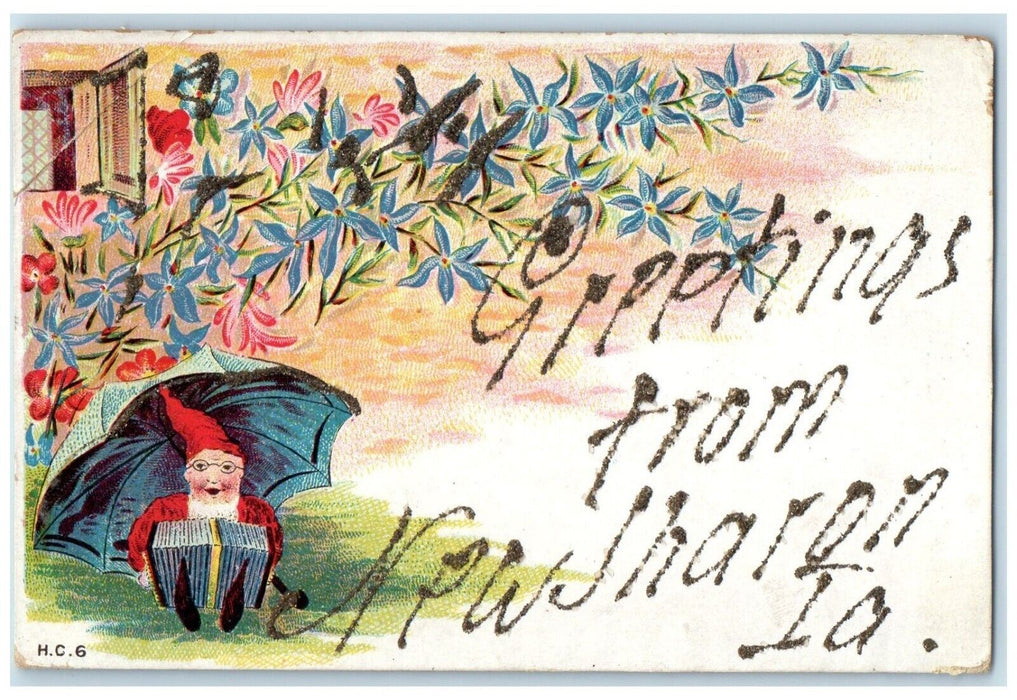 Greetings
from
New Sharon
Ia.
H.C.6